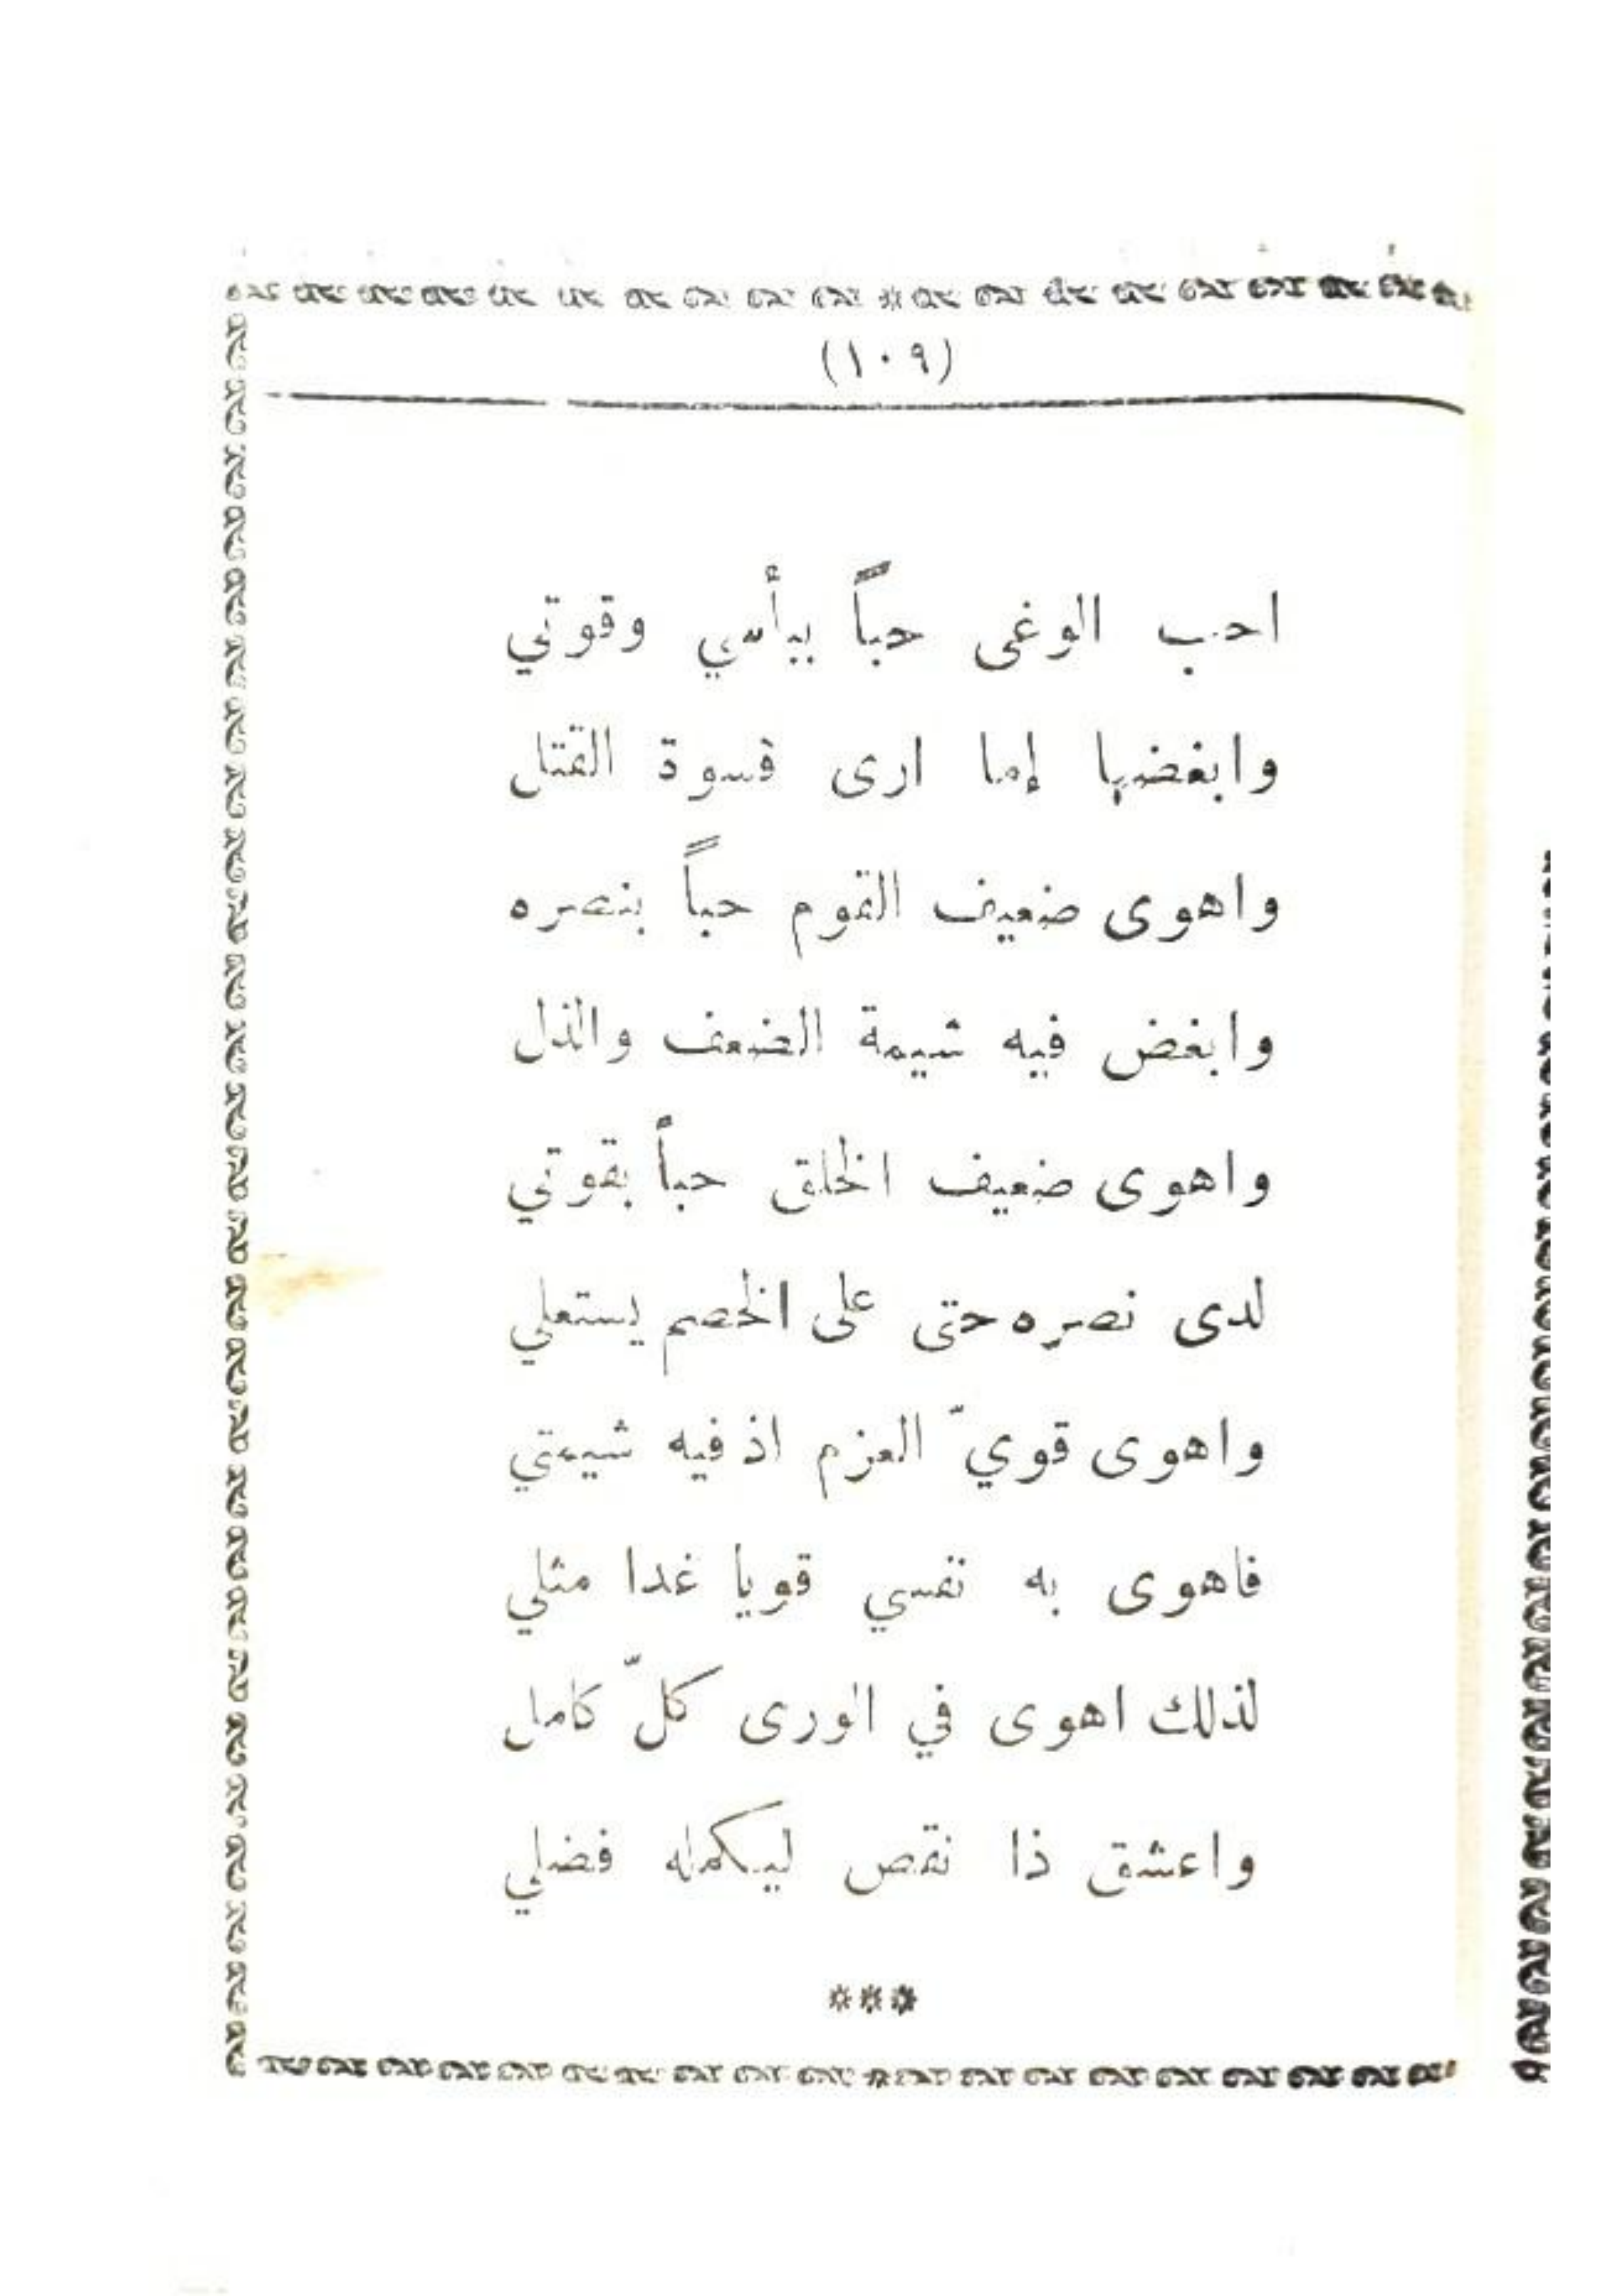 (١٠٩)
احب الوغى حباً ببأسي وقوتي
وابغضها إما ارى قسوة القتل
واهوى ضعيف القوم حباً بنصره
وابغض فيه شيمة الضعف والذل
واهوى ضعيف الخلق حباً بقوتي
لدى نصره حتى على الخصم يستعلي
واهوى قويّ العزم اذ فيه شيمتي
فاهوى به نفسي قويا غدا مثلي
لذلك اهوى في الورى كلّ كامل
واعشق ذا نقص ليكمله فضلي
***